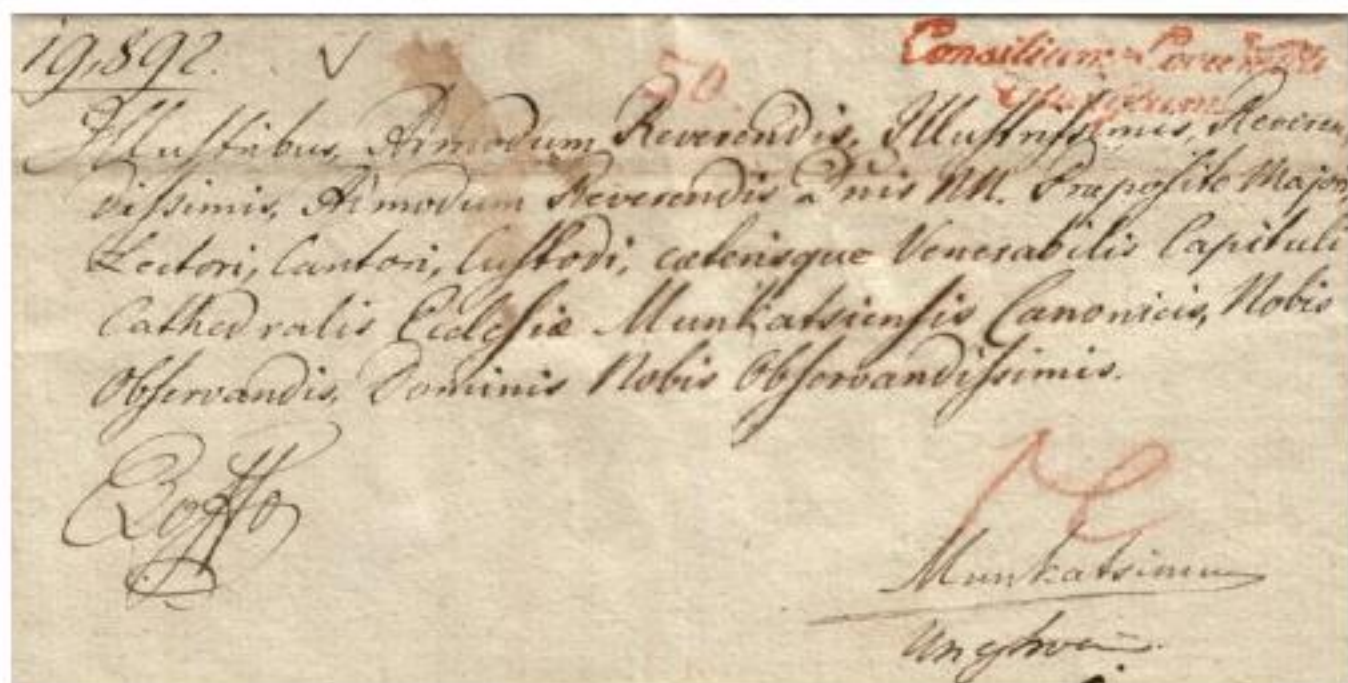 19,892.
50.
Consilium Locumten
Illustribus, Admodum Reverendis, Illustrissimis, Reveren
dissimis, Admodum Reverendis ac Dnis NN. Præposito Majori,
Lectori, Cantori, Custodi, cæterisque Venerabilis Capituli
Cathedralis Ecclesiæ Munkatsiensis Canonicis, Nobis
Observandis, Dominis Nobis Observandissimis.
Munkatsinum
Unghvár.